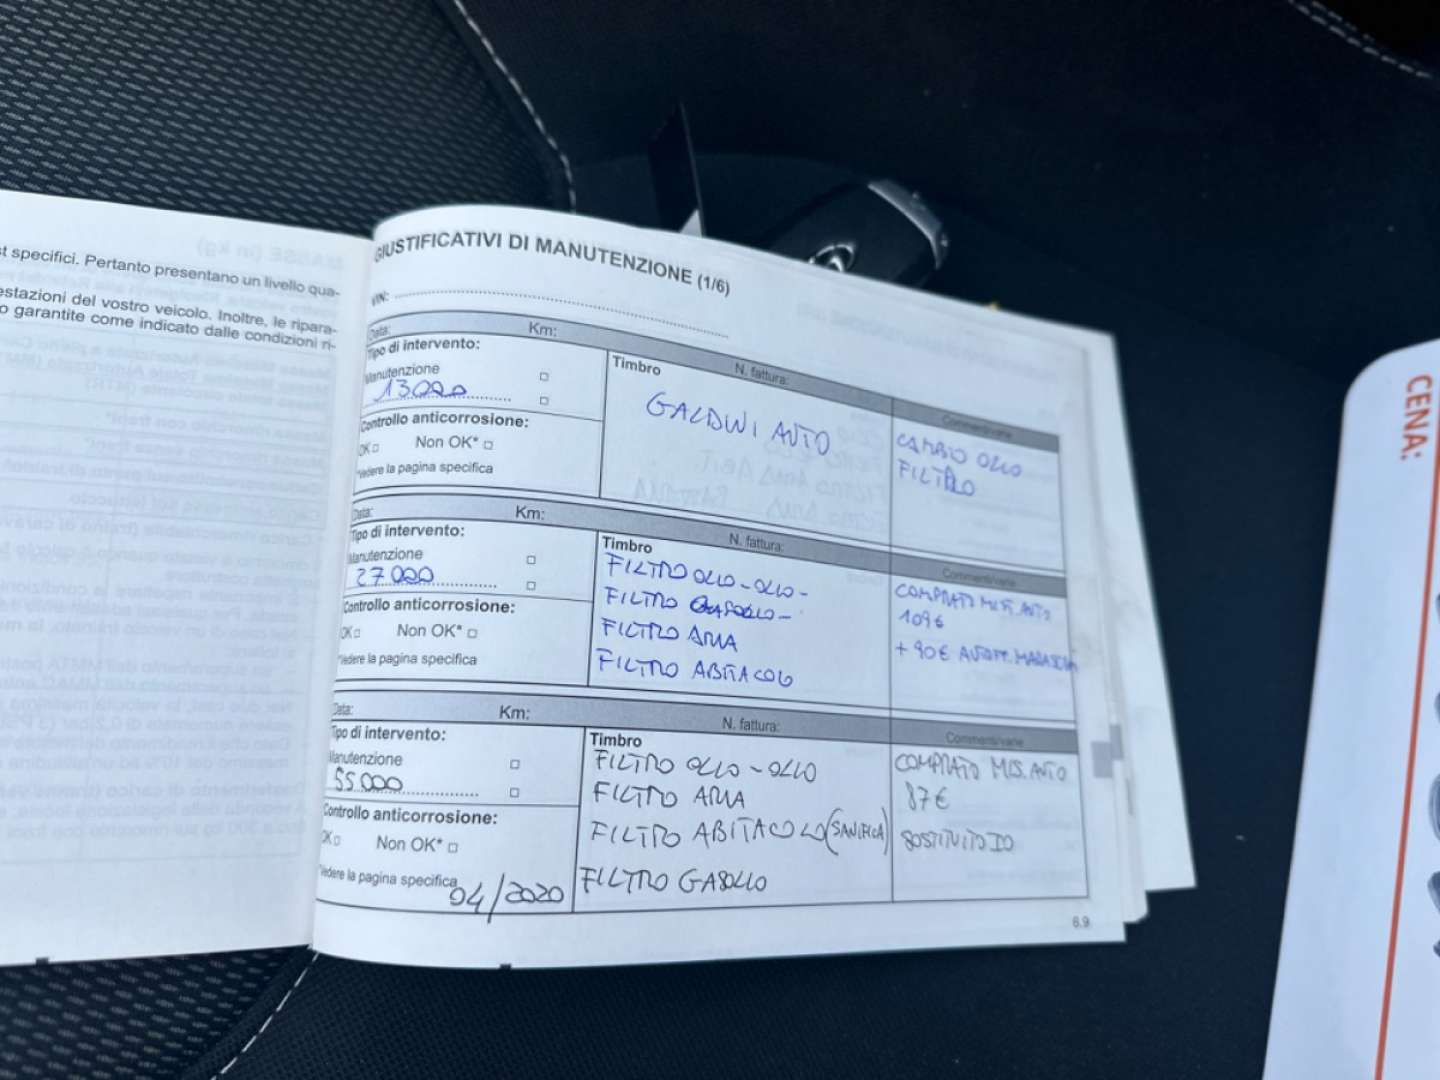 t specifici. Pertanto presentano un livello qua-
estazioni del vostro veicolo. Inoltre, le ripara-
o garantite come indicato dalle condizioni ri-
GIUSTIFICATIVI DI MANUTENZIONE (1/6)
VIN:
Data: Km: N. fattura: Commenti/varie
Tipo di intervento:
Manutenzione
13000
Controllo anticorrosione:
OK Non OK*
*Vedere la pagina specifica
Timbro
GALDINI AUTO
CAMBIO OLIO
FILTRO
Data: Km: N. fattura: Commenti/varie
Tipo di intervento:
Manutenzione
27000
Controllo anticorrosione:
OK Non OK*
*Vedere la pagina specifica
Timbro
FILTRO OLIO - OLIO -
FILTRO GASOLIO -
FILTRO ARIA
FILTRO ABITACOLO
COMPRATO MIS. AUTO
109€
+ 90€
Data: Km: N. fattura: Commenti/varie
Tipo di intervento:
Manutenzione
55000
Controllo anticorrosione:
OK Non OK*
*Vedere la pagina specifica
04/2020
Timbro
FILTRO OLIO - OLIO
FILTRO ARIA
FILTRO ABITACOLO (SANIFICA)
FILTRO GASOLIO
COMPRATO MIS. AUTO
87€
SOSTITUITO IO
6.9
CENA: